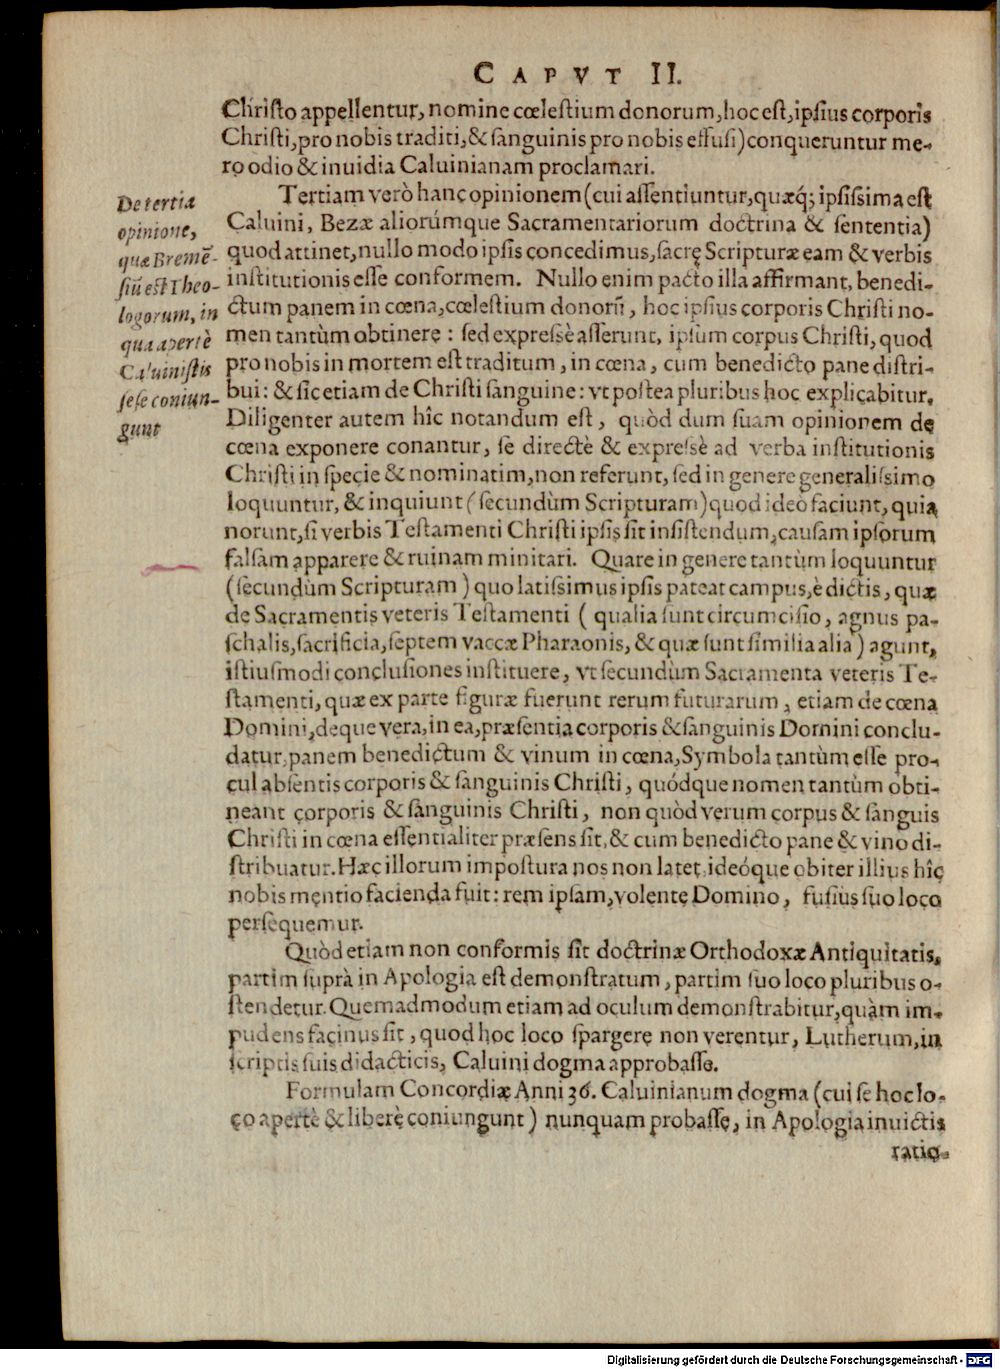 CAPVT II.
Christo appellentur, nomine cœlestium donorum, hoc est, ipsius corporis
Christi, pro nobis traditi, & sanguinis pro nobis effusi) conqueruntur me-
ro odio & inuidia Caluinianam proclamari.
De tertia
opinione,
quæ Bremē-
siū est Theo-
logorum, in
qua apertè
Caluinistis
sese coniun-
gunt
Tertiam verò hanc opinionem (cui assentiuntur, quæq́; ipsissima est
Caluini, Bezæ aliorúmque Sacramentariorum doctrina & sententia)
quod attinet, nullo modo ipsis concedimus, sacrę Scripturæ eam & verbis
institutionis esse conformem. Nullo enim pacto illa affirmant, benedi-
ctum panem in cœna, cœlestium donorū, hoc ipsius corporis Christi no-
men tantùm obtinere: sed expressè asserunt, ipsum corpus Christi, quod
pro nobis in mortem est traditum, in cœna, cum benedicto pane distri-
bui: & sic etiam de Christi sanguine: vt postea pluribus hoc explicabitur.
Diligenter autem hîc notandum est, quòd dum suam opinionem de
cœna exponere conantur, se directè & expressè ad verba institutionis
Christi in specie & nominatim, non referunt, sed in genere generalissimo
loquuntur, & inquiunt (secundùm Scripturam) quod ideò faciunt, quia
norunt, si verbis Testamenti Christi ipsis sit insistendum, causam ipsorum
falsam apparere & ruinam minitari. Quare in genere tantùm loquuntur
(secundùm Scripturam) quo latissimus ipsis pateat campus, è dictis, quæ
de Sacramentis veteris Testamenti (qualia sunt circumcisio, agnus pa-
schalis, sacrificia, septem vaccæ Pharaonis, & quæ sunt similia alia) agunt,
istiusmodi conclusiones instituere, vt secundùm Sacramenta veteris Te-
stamenti, quæ ex parte figuræ fuerunt rerum futurarum, etiam de cœna
Domini, deque vera, in ea, præsentia corporis & sanguinis Domini conclu-
datur, panem benedictum & vinum in cœna, Symbola tantùm esse pro-
cul absentis corporis & sanguinis Christi, quódque nomen tantùm obti-
neant corporis & sanguinis Christi, non quòd verum corpus & sanguis
Christi in cœna essentialiter præsens sit, & cum benedicto pane & vino di-
stribuatur. Hæc illorum impostura nos non latet, ideóque obiter illius hîc
nobis mentio facienda fuit: rem ipsam, volente Domino, fusiùs suo loco
persequemur.
Quòd etiam non conformis sit doctrinæ Orthodoxæ Antiquitatis,
partim suprà in Apologia est demonstratum, partim suo loco pluribus o-
stendetur. Quemadmodum etiam ad oculum demonstrabitur, quàm im-
pudens facinus sit, quod hoc loco spargere non verentur, Lutherum, in
scriptis suis didacticis, Caluini dogma approbasse.
Formulam Concordiæ Anni 36. Caluinianum dogma (cui se hoc lo-
co apertè & liberè coniungunt) nunquam probasse, in Apologia inuictis
ratio-
Digitalisierung gefördert durch die Deutsche Forschungsgemeinschaft - DFG